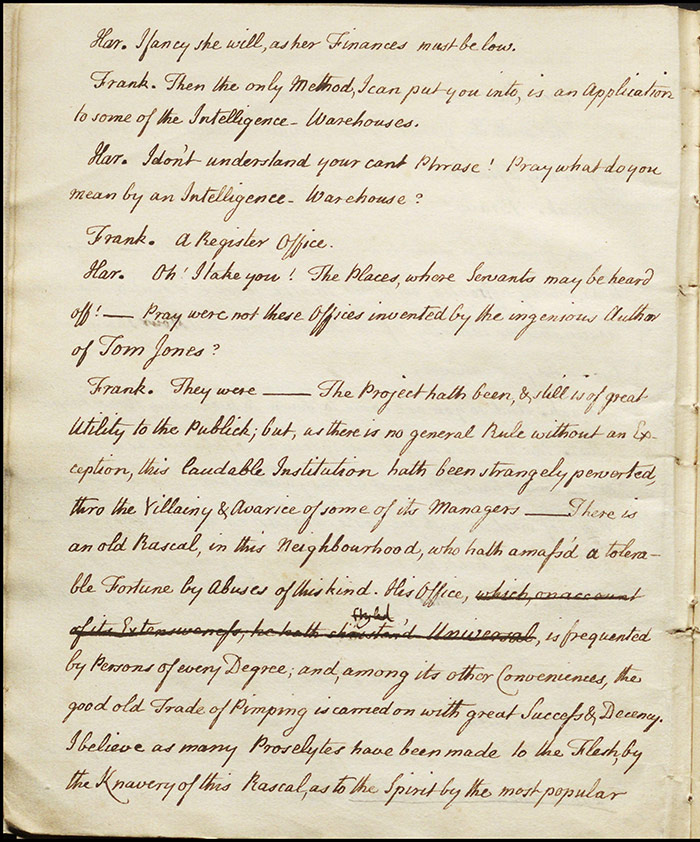 Har. I fancy she will, as her Finances must be low.
Frank. Then the only Method, I can put you into, is an Application
to some of the Intelligence-Warehouses.
Har. I don't understand your cant Phrase! Pray what do you
mean by an Intelligence-Warehouse?
Frank. A Register Office.
Har. Oh! I take you! The Places, where Servants may be heard
off! — Pray were not these Offices invented by the ingenious Author
of Tom Jones?
Frank. They were — The Project hath been, & still is of great
Utility to the Publick; but, as there is no general Rule without an Ex-
ception, this laudable Institution hath been strangely perverted,
thro the Villainy & Avarice of some of its Managers — There is
an old Rascal, in this Neighbourhood, who hath amass'd a tolera-
ble Fortune by Abuses of this kind. His Office, which, on account
Styled
of its Extensiveness, he hath christen'd Universal, is frequented
by Persons of every Degree; and, among its other Conveniences, the
good old Trade of Pimping is carried on with great Success & Decency.
I believe as many Proselytes have been made to the Flesh, by
the Knavery of this Rascal, as to the Spirit by the most popular